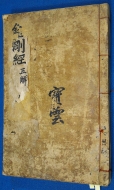 金剛經五解
寶雲